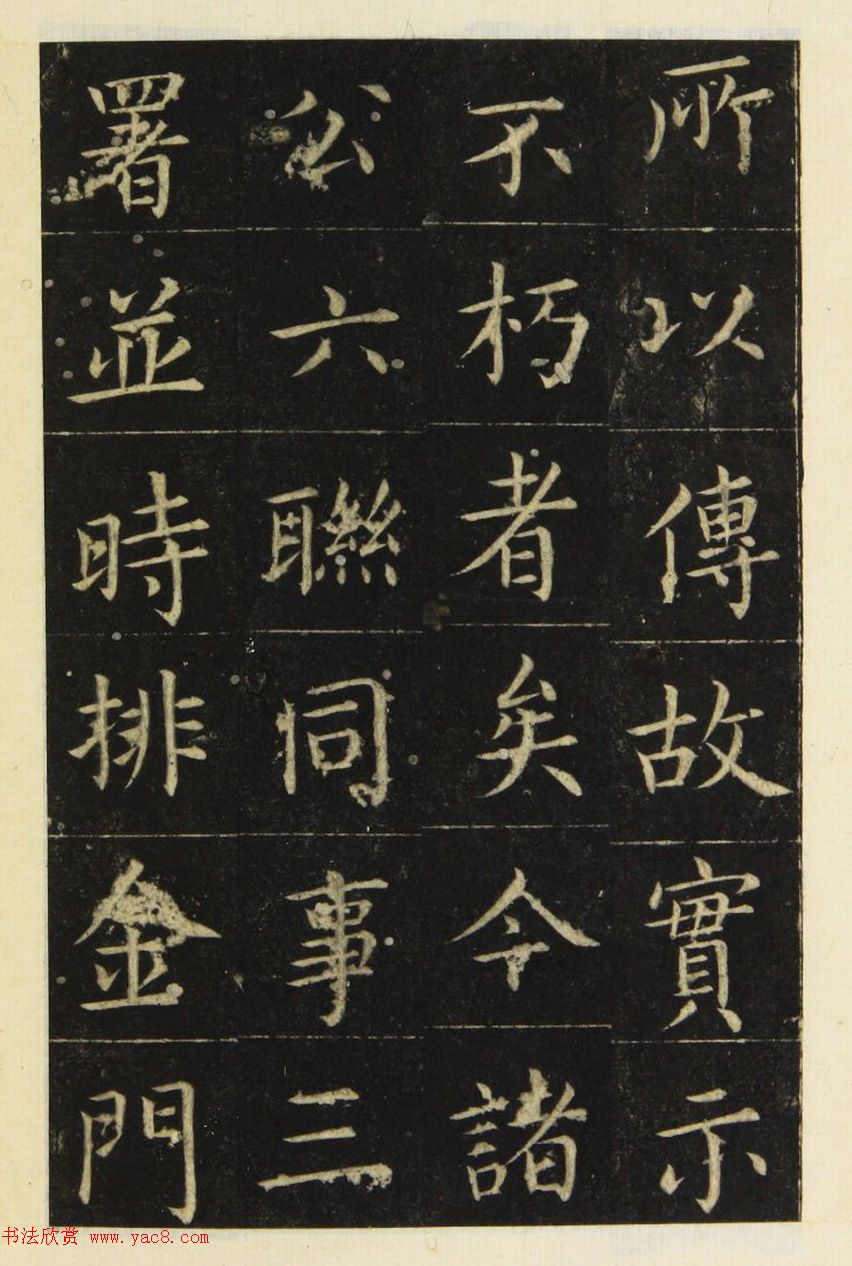 所以傳故實示
不朽者矣今諸
公六聯同事三
署並時排金門
书法欣赏 www.yac8.com